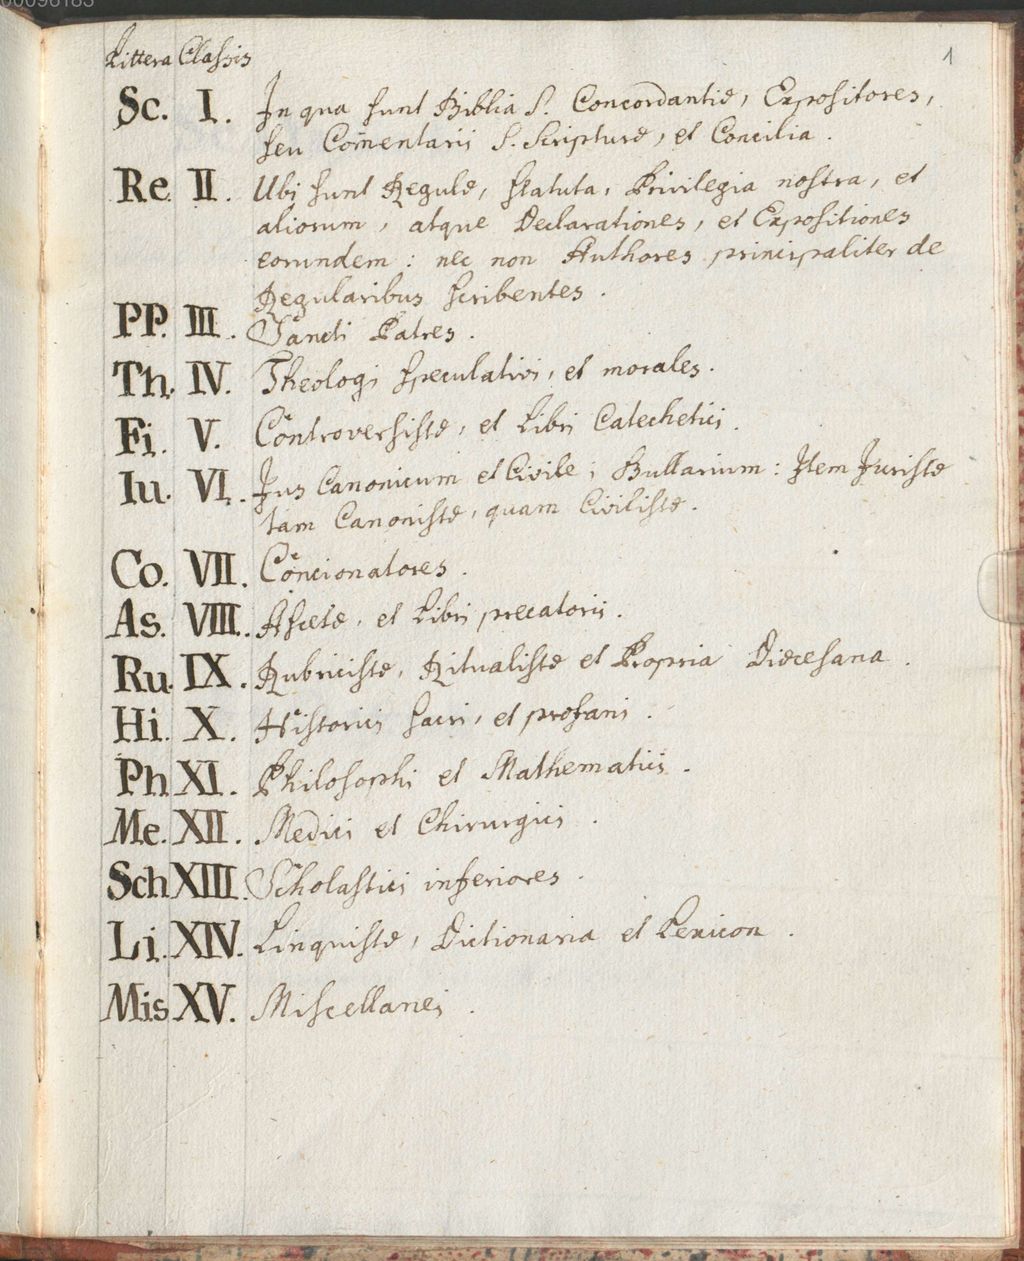 00096183
1
Littera Classis
Sc. I. In qua sunt Biblia S. Concordantiæ, Expositores,
seu Com̄entarii S. Scripturæ, et Concilia.
Re. II. Ubi sunt Regulæ, Statuta, Privilegia nostra, et
aliorum, atque Declarationes, et Expositiones
eorundem: nec non Authores principaliter de
Regularibus scribentes.
PP. III. Sancti Patres.
Th. IV. Theologi speculativi, et morales.
Fi. V. Controversistæ, et Libri Catechetici.
Iu. VI. Jus Canonicum et Civile; Bullarium: Item Juristæ
tam Canonistæ, quam Civilistæ.
Co. VII. Concionatores.
As. VIII. Ascetæ, et Libri precatorii.
Ru. IX. Rubricistæ, Ritualistæ et Propria Diœcesana.
Hi. X. Historici sacri, et profani.
Ph. XI. Philosophi et Mathematici.
Me. XII. Medici et Chirurgici.
Sch. XIII. Scholastici inferiores.
Li. XIV. Linquistæ, Dictionaria et Lexicon.
Mis. XV. Miscellanei.